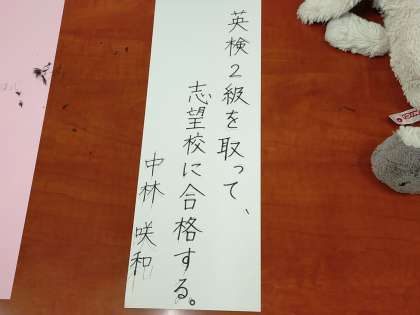 英検2級を取って、
志望校に合格する。
中林 咲和